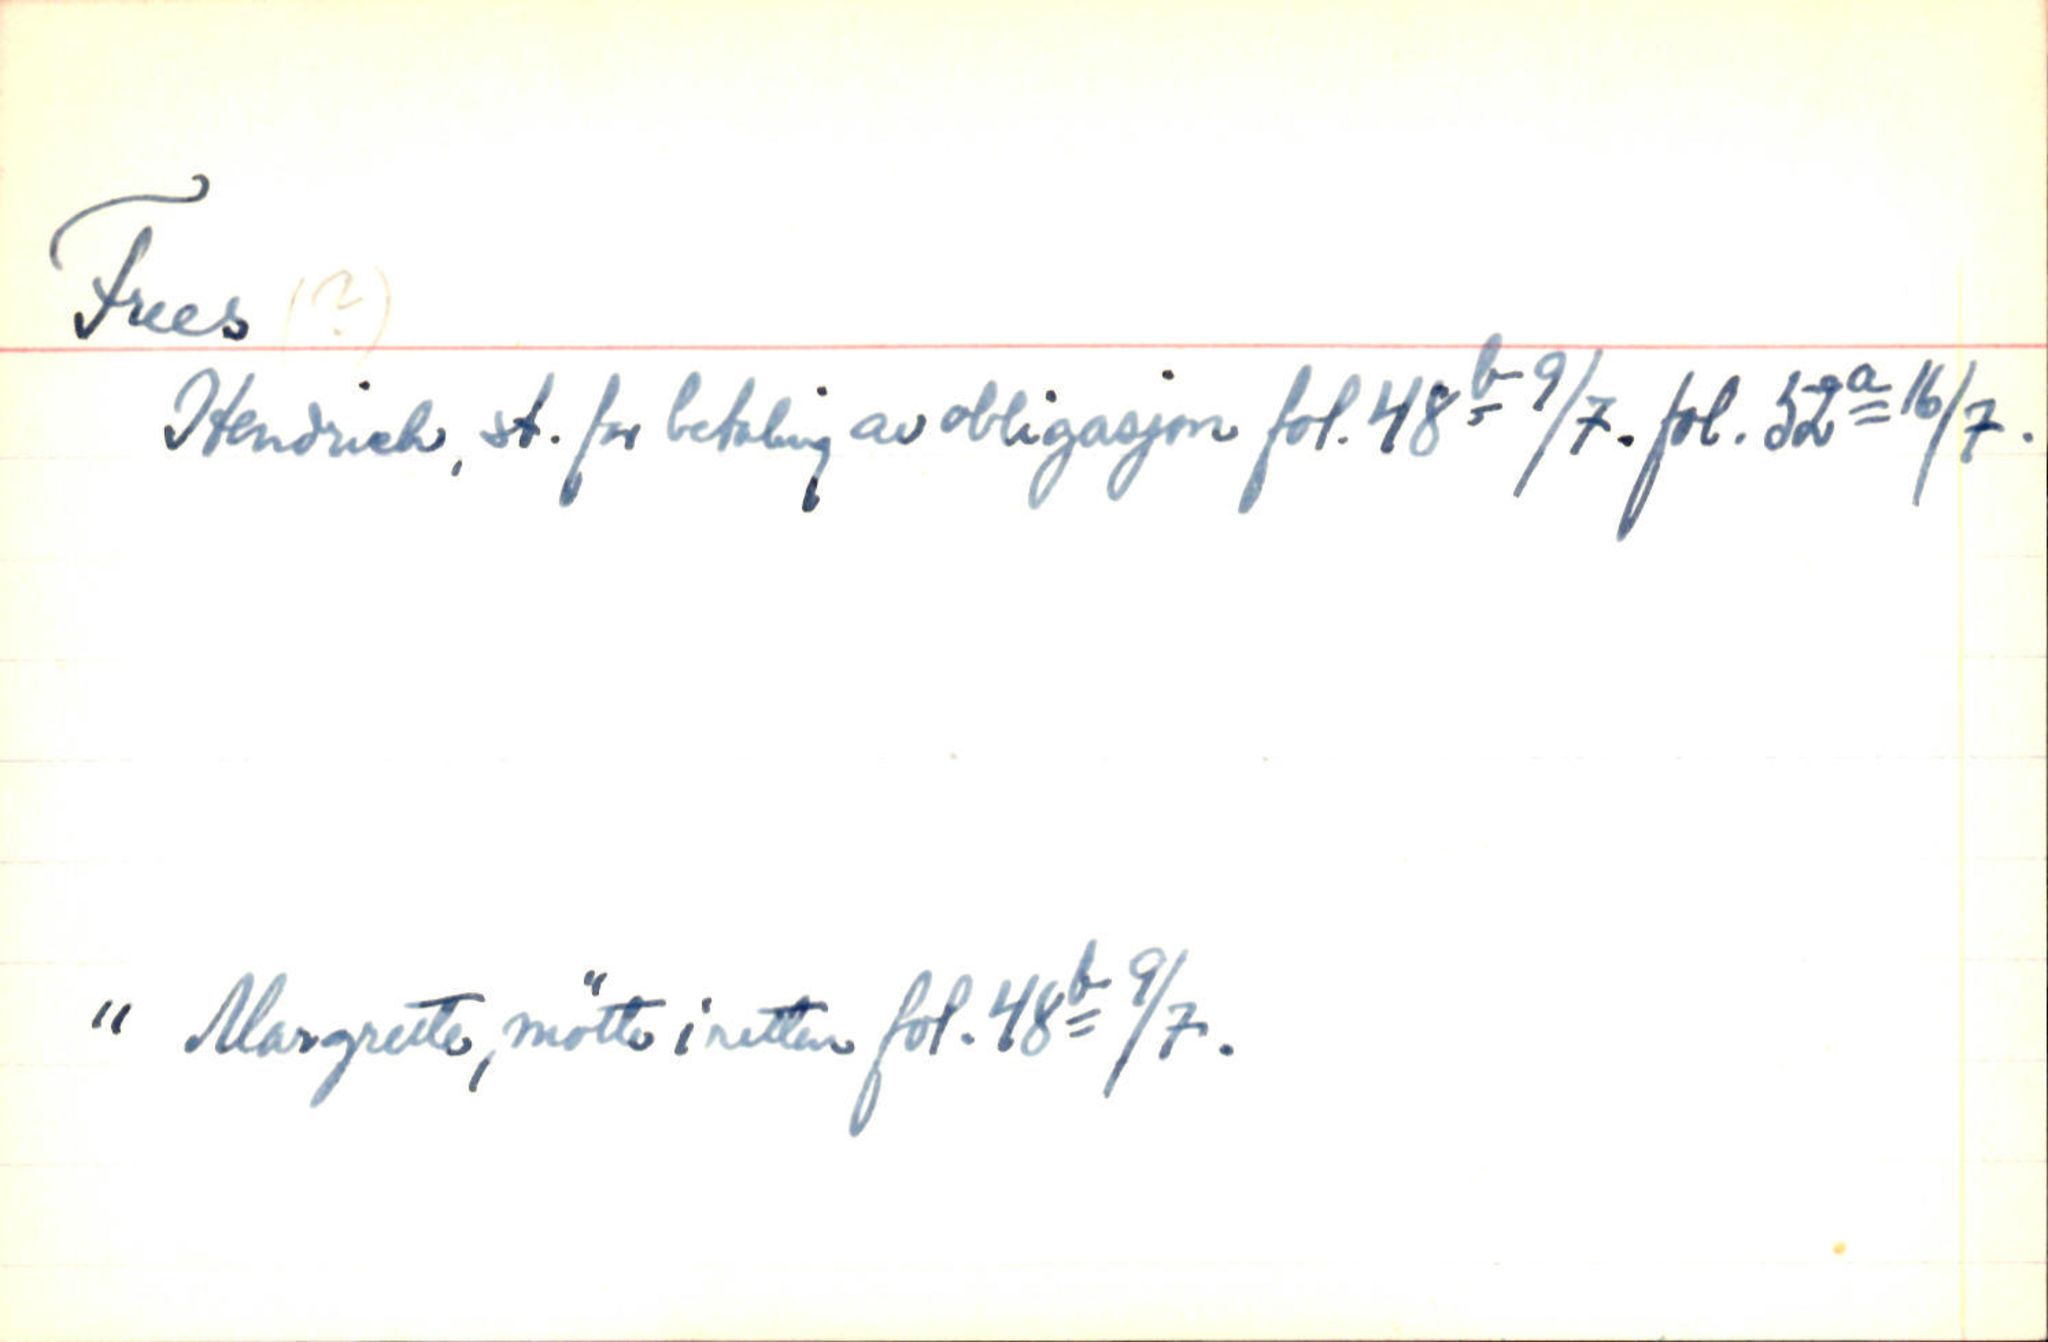 Frees (?)
Hendrich, st. for betaling av obligasjon fol. 48b 9/7. fol. 52a 16/7.
" Margrete, mötte i retten fol. 48b 9/7.